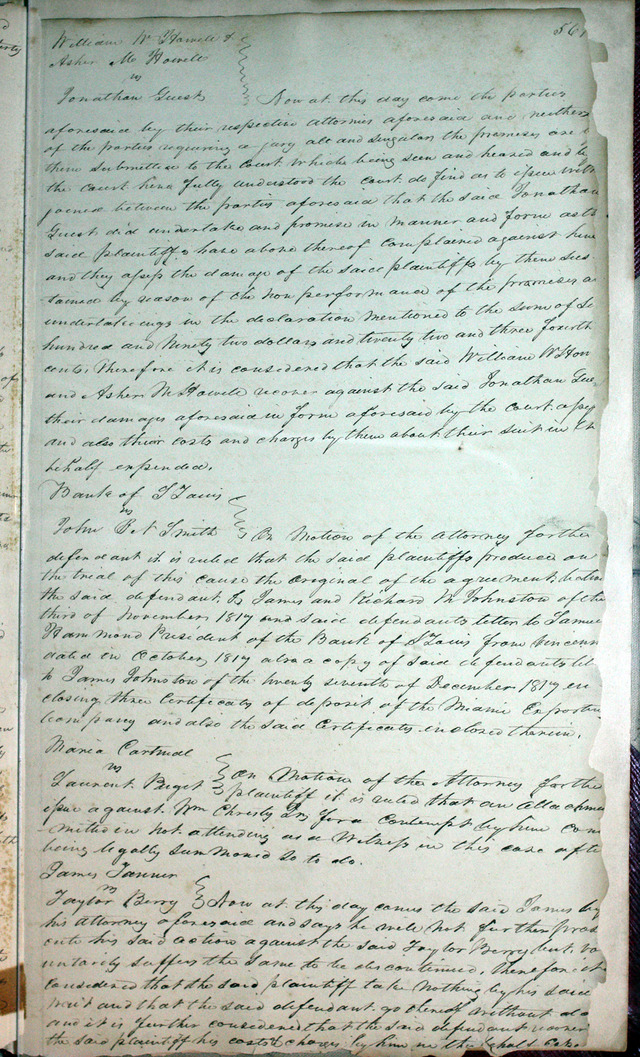 561
William W Howell &
Asher M Howell
vs
Jonathan Guest Now at this day come the parties
aforesaid by their respective attornies aforesaid and neither
of the parties requiring a jury all and singular the premises are
then submitted to the court which being seen and heard and by
the court here fully understood the court do find as to issue with
joined between the parties aforesaid that the said Jonathan
Guest did undertake and promise in manner and form as the
said plaintiffs have above thereof complained against him
and they assess the damage of the said plaintiffs by them sus
tained by reason of the non performance of the promises a
undertakings in the declaration mentioned to the sum of
hundred and Ninety two dollars and twenty two and three fourth
cents, Therefore it is considered that the said William W How
and Asher M Howell recover against the said Jonathan Gue
their damages aforesaid in form aforesaid by the court asse
and also their costs and charges by them about their suit in th
behalf expended.
Bank of St Louis
vs
John B N Smith On Motion of the Attorney for the
defendant it is ruled that the said plaintiffs produce on
the trial of this cause the original of the agreement betwe
the said defendant to James and Richard M Johnston of the
third of November 1817 and said defendants letter to Samuel
Hammond President of the Bank of St Louis from Vincenn
dated in October 1817 also a copy of said defendants let
to James Johnston of the twenty seventh of December 1817 en
closing three certificates of deposit of the Miami Exporting
Company and also the said Certificates inclosed therein.
Maria Cartmill
vs
Laurent Puget On Motion of the Attorney for the
plaintiff it is ruled that an attachmen
issue against Wm Christy Jr for a contempt by him com
mitted in not attending as a witness in this case afte
being legally summoned so to do.
James Tanner
vs
Taylor Berry Now at this day comes the said James by
his Attorney aforesaid and says he will not further pros
ecute his said action against the said Taylor Berry but vo
untarily suffers the same to be discontinued, Therefore it
considered that the said plaintiff take nothing by his said
writ and that the said defendant go thereof without da
and it is further considered that the said defendant recover
the said plaintiff his costs & charges by him in the behalf